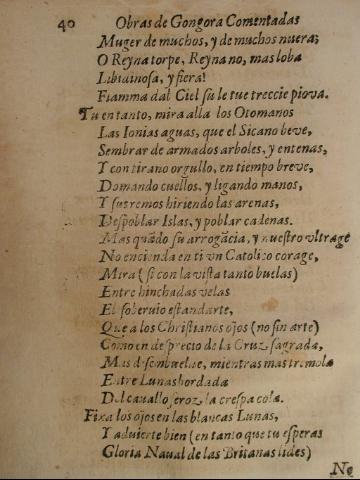 40 Obras de Gongora Comentadas
Muger de muchos, y de muchos nuera;
O Reyna torpe, Reyna no, mas loba
Libidinosa, y fiera!
Fiamma dal Ciel su le tue treccie piova.
Tu en tanto, mira allà los Otomanos
Las Ionias aguas, que el Sicano beve,
Sembrar de armados arboles, y entenas,
Y con tirano orgullo, en tiempo breve,
Domando cuellos, y ligando manos,
Y sus remos hiriendo las arenas,
Despoblar Islas, y poblar cadenas.
Mas quãdo su arrogãcia, y nuestro vltrage
No encienda en ti vn Catolico corage,
Mira (si con la vista tanto buelas)
Entre hinchadas velas
El soberuio estandarte,
Que a los Christianos ojos (no sin arte)
Como en desprecio de la Cruz sagrada,
Mas desembuelue, mientras mas tremola
Entre Lunas bordada
Del cauallo feroz la crespa cola.
Fixa los ojos en las blancas Lunas,
Y aduierte bien (en tanto que tu esperas
Gloria Naual de las Britanas lides)
No